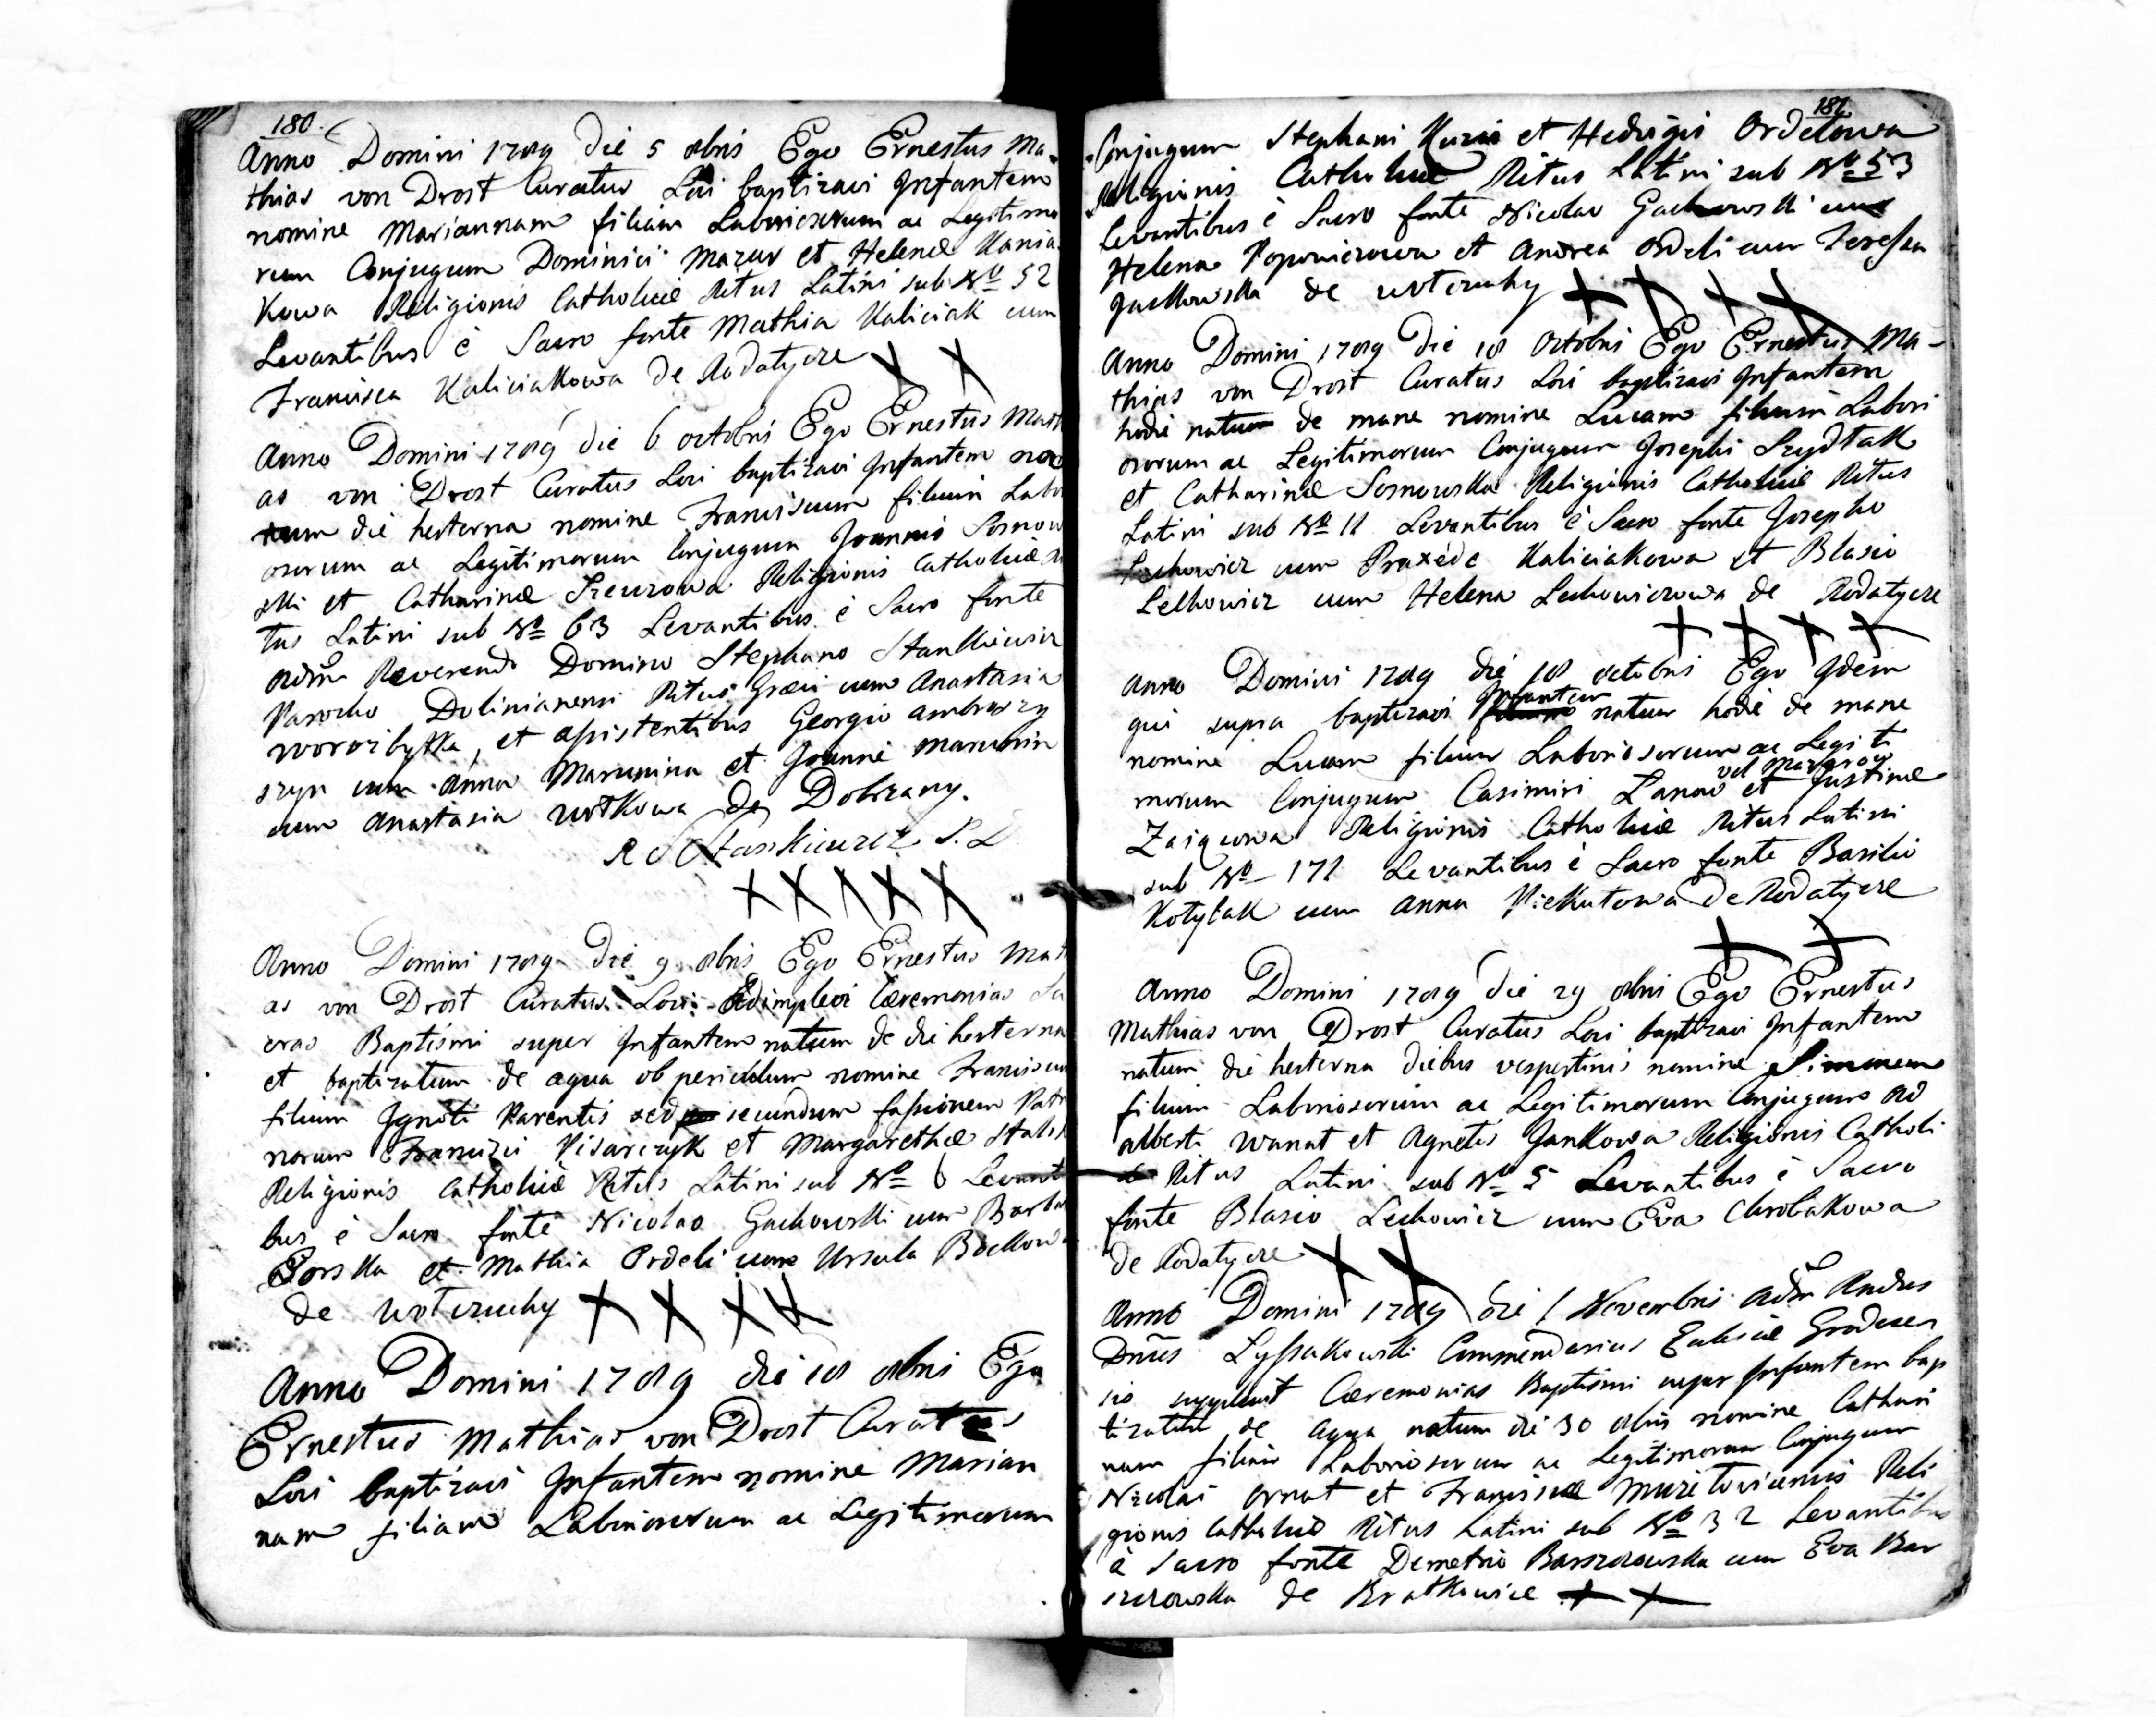 180.
Anno Domini 1789 die 5 8bris Ego Ernestus Ma-
thias von Drost Curatus Loci baptizavi Infantem
nomine Mariannam filiam Laboriosorum ac Legitimo
rum Conjugum Dominici Mazur et Helenæ Kania
Kowa Religionis Catholicæ Ritus Latini sub No 52
Levantibus è Sacro fonte Mathia Kaliciak cum
Francisca Kaliciakowa de Rodatycze
Anno Domini 1789 die 6 octobris Ego Ernestus Mathi
as von Drost Curatus Loci baptizavi Infantem na
tum die hesterna nomine Franciscum filium Labo
osorum ac Legitimorum Conjugum Joannis Sosnow
ski et Catharinæ Szewzowa Religionis Catholicæ Ri
tus Latini sub No 63 Levantibus è Sacro fonte
Adm Reverendo Domino Stephano Stankiewicz
Parocho Dolinianensi Ritus Græci cum Anastasia
Worozbytka, et assistentibus Georgio Ambrozy
szyn cum Anna Marunina et Joanne Marunin
cum Anastasia Wotkowa de Dobrzany.
R S Stankiewicz P. D
Anno Domini 1789 die 9 8bris Ego Ernestus Mathi
as von Drost Curatus Loci Adimplevi Cæremonias Sa
cras Baptismi super Infantem natum de die hesterna
et baptizatum de aqua ob periculum nomine Franciscum
filium Ignoti Parentis sed secundum fassionem Patri
norum Francizci Pisarczyk et Margarethæ
Religionis Catholicæ Ritus Latini sub No 6 Levanti
bus è Sacro fonte Nicolao Gackowski cum Barbar
Gorska et Mathia Ordeli cum Ursula
de Wotczuchy
Anno Domini 1789 die 18 8bris Ego
Ernestus Mathias von Drost Curatus
Loci baptizavi Infantem nomine Marian
nam filiam Laboriosorum ac Legitimorum
181
Conjugum Stephani Kuzia et Hedvigis Ordelowa
Religionis Catholicæ Ritus Latini sub No 53
Levantibus è Sacro fonte Nicolao Gackowski cum
Helena Popowiczowa et Andrea Ordeli cum Teressa
Gackowska de Wotczuchy
Anno Domini 1789 die 18 Octobris Ego Ernestus Ma-
thias von Drost Curatus Loci baptizavi Infantem
hodie natum de mane nomine Lucam filium Labori
osorum ac Legitimorum Conjugum Josephi Szydtak
et Catharinæ Sosnowska Religionis Catholicæ Ritus
Latini sub No 11 Levantibus è Sacro fonte Josepho
Lechowicz cum Praxede Kaliciakowa et Blasio
Lelkowicz cum Helena Lechowiczowa de Rodatycze
Anno Domini 1789 die 18 octobris Ego Idem
qui supra baptizavi Infantem natum hodie de mane
nomine Lucam filium Laboriosorum ac Legiti
morum Conjugum Casimiri Zanow vel et Justinæ
Zaiqcowa Religionis Catholicæ Ritus Latini
sub No 171 Levantibus è Sacro fonte Basilio
Kotylak cum Anna Piekutowa de Rodatycze
Anno Domini 1789 die 29 8bris Ego Ernestus
Mathias von Drost Curatus Loci baptizavi Infantem
natum die hesterna diebus vespertinis nomine Simonem
filium Laboriosorum ac Legitimorum Conjugum Ad
alberti Wanat et Agnetis Jankowa Religionis Catholi
Ritus Latini sub No 5 Levantibus è Sacro
fonte Blasio Lechowicz cum Eva Chrobakowa
de Rodatycze
Anno Domini 1789 die 1 Novembris Adm Rndus
Dnus Lyssakowski Commendarius Eclesiæ Grodecen
sis supplevit Cæremonias Baptismi super Infantem bap
tizatum de aqua natum die 30 8bris nomine Cathari
nam filiam Laboriosorum ac Legitimorum Conjugum
Nicolai Ornat et Franciscæ Reli
gionis Catholicæ Ritus Latini sub No 32 Levantibus
è Sacro fonte Demetrio Barszczowska cum Eva Bar
szczowska de Bratkowice